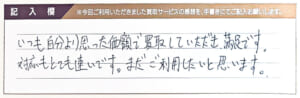 記入欄 ※今回ご利用いただきました買取サービスの感想を、手書きにてご記入お願いします。
いつも自分より思った価額で買取していただき、満足です。
対応もとても速いです。まだご利用したいと思います。